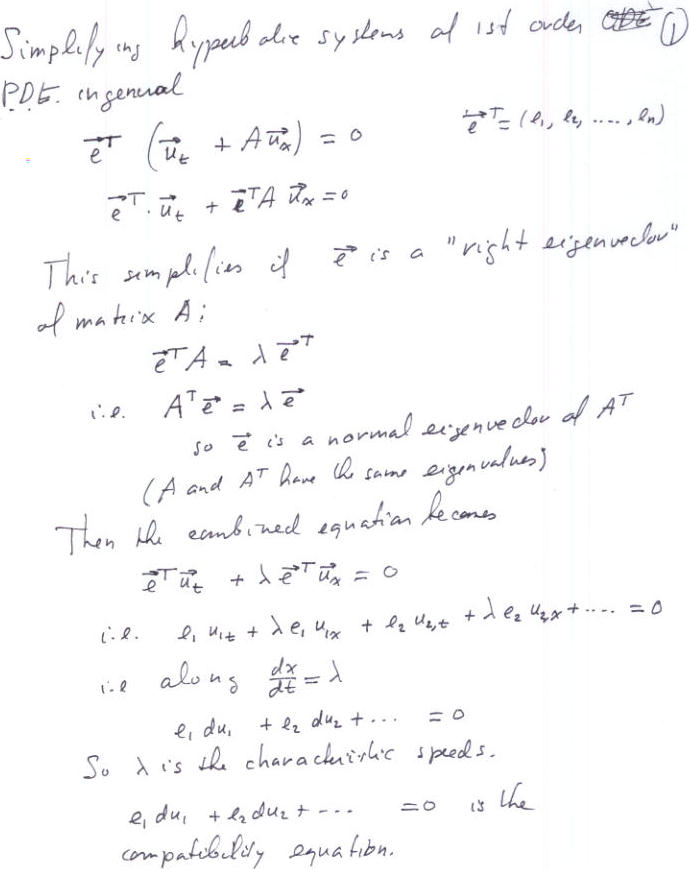 Simplifying hyperbolic systems of 1st order ①
P.D.E. in general
e⃗ᵀ (u⃗ₜ + A u⃗ₓ) = 0     e⃗ᵀ = (e₁, e₂, ...., eₙ)
e⃗ᵀ · u⃗ₜ + e⃗ᵀA u⃗ₓ = 0
This simplifies if e⃗ is a "right eigenvector"
of matrix A:
e⃗ᵀA = λ e⃗ᵀ
i.e. Aᵀe⃗ = λ e⃗
so e⃗ is a normal eigenvector of Aᵀ
(A and Aᵀ have the same eigenvalues)
Then the combined equation becomes
e⃗ᵀu⃗ₜ + λ e⃗ᵀu⃗ₓ = 0
i.e. e₁ u₁ₜ + λ e₁ u₁ₓ + e₂ u₂,ₜ + λ e₂ u₂,ₓ + .... = 0
i.e along dx/dt = λ
e₁ du₁ + e₂ du₂ + ... = 0
So λ is the characteristic speeds.
e₁ du₁ + e₂ du₂ + ... = 0 is the
compatibility equation.